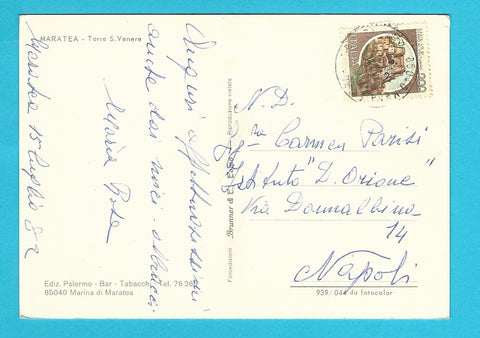 MARATEA - Torre S. Venere
Maratea 15 luglio 82
Auguri affettuosissimi
anche dai miei. abbracci
Maria Rosa
Ediz. Palermo - Bar - Tabacchi Tel. 76 26
85040 Marina di Maratea
Fotoedizioni Brunner & C. Como Riproduzione vietata
ITALIA
N. D.
Sig.na Carmen Parisi
Istituto "D. Orione"
Via Donnalbina
14
Napoli
939/044 da fotocolor